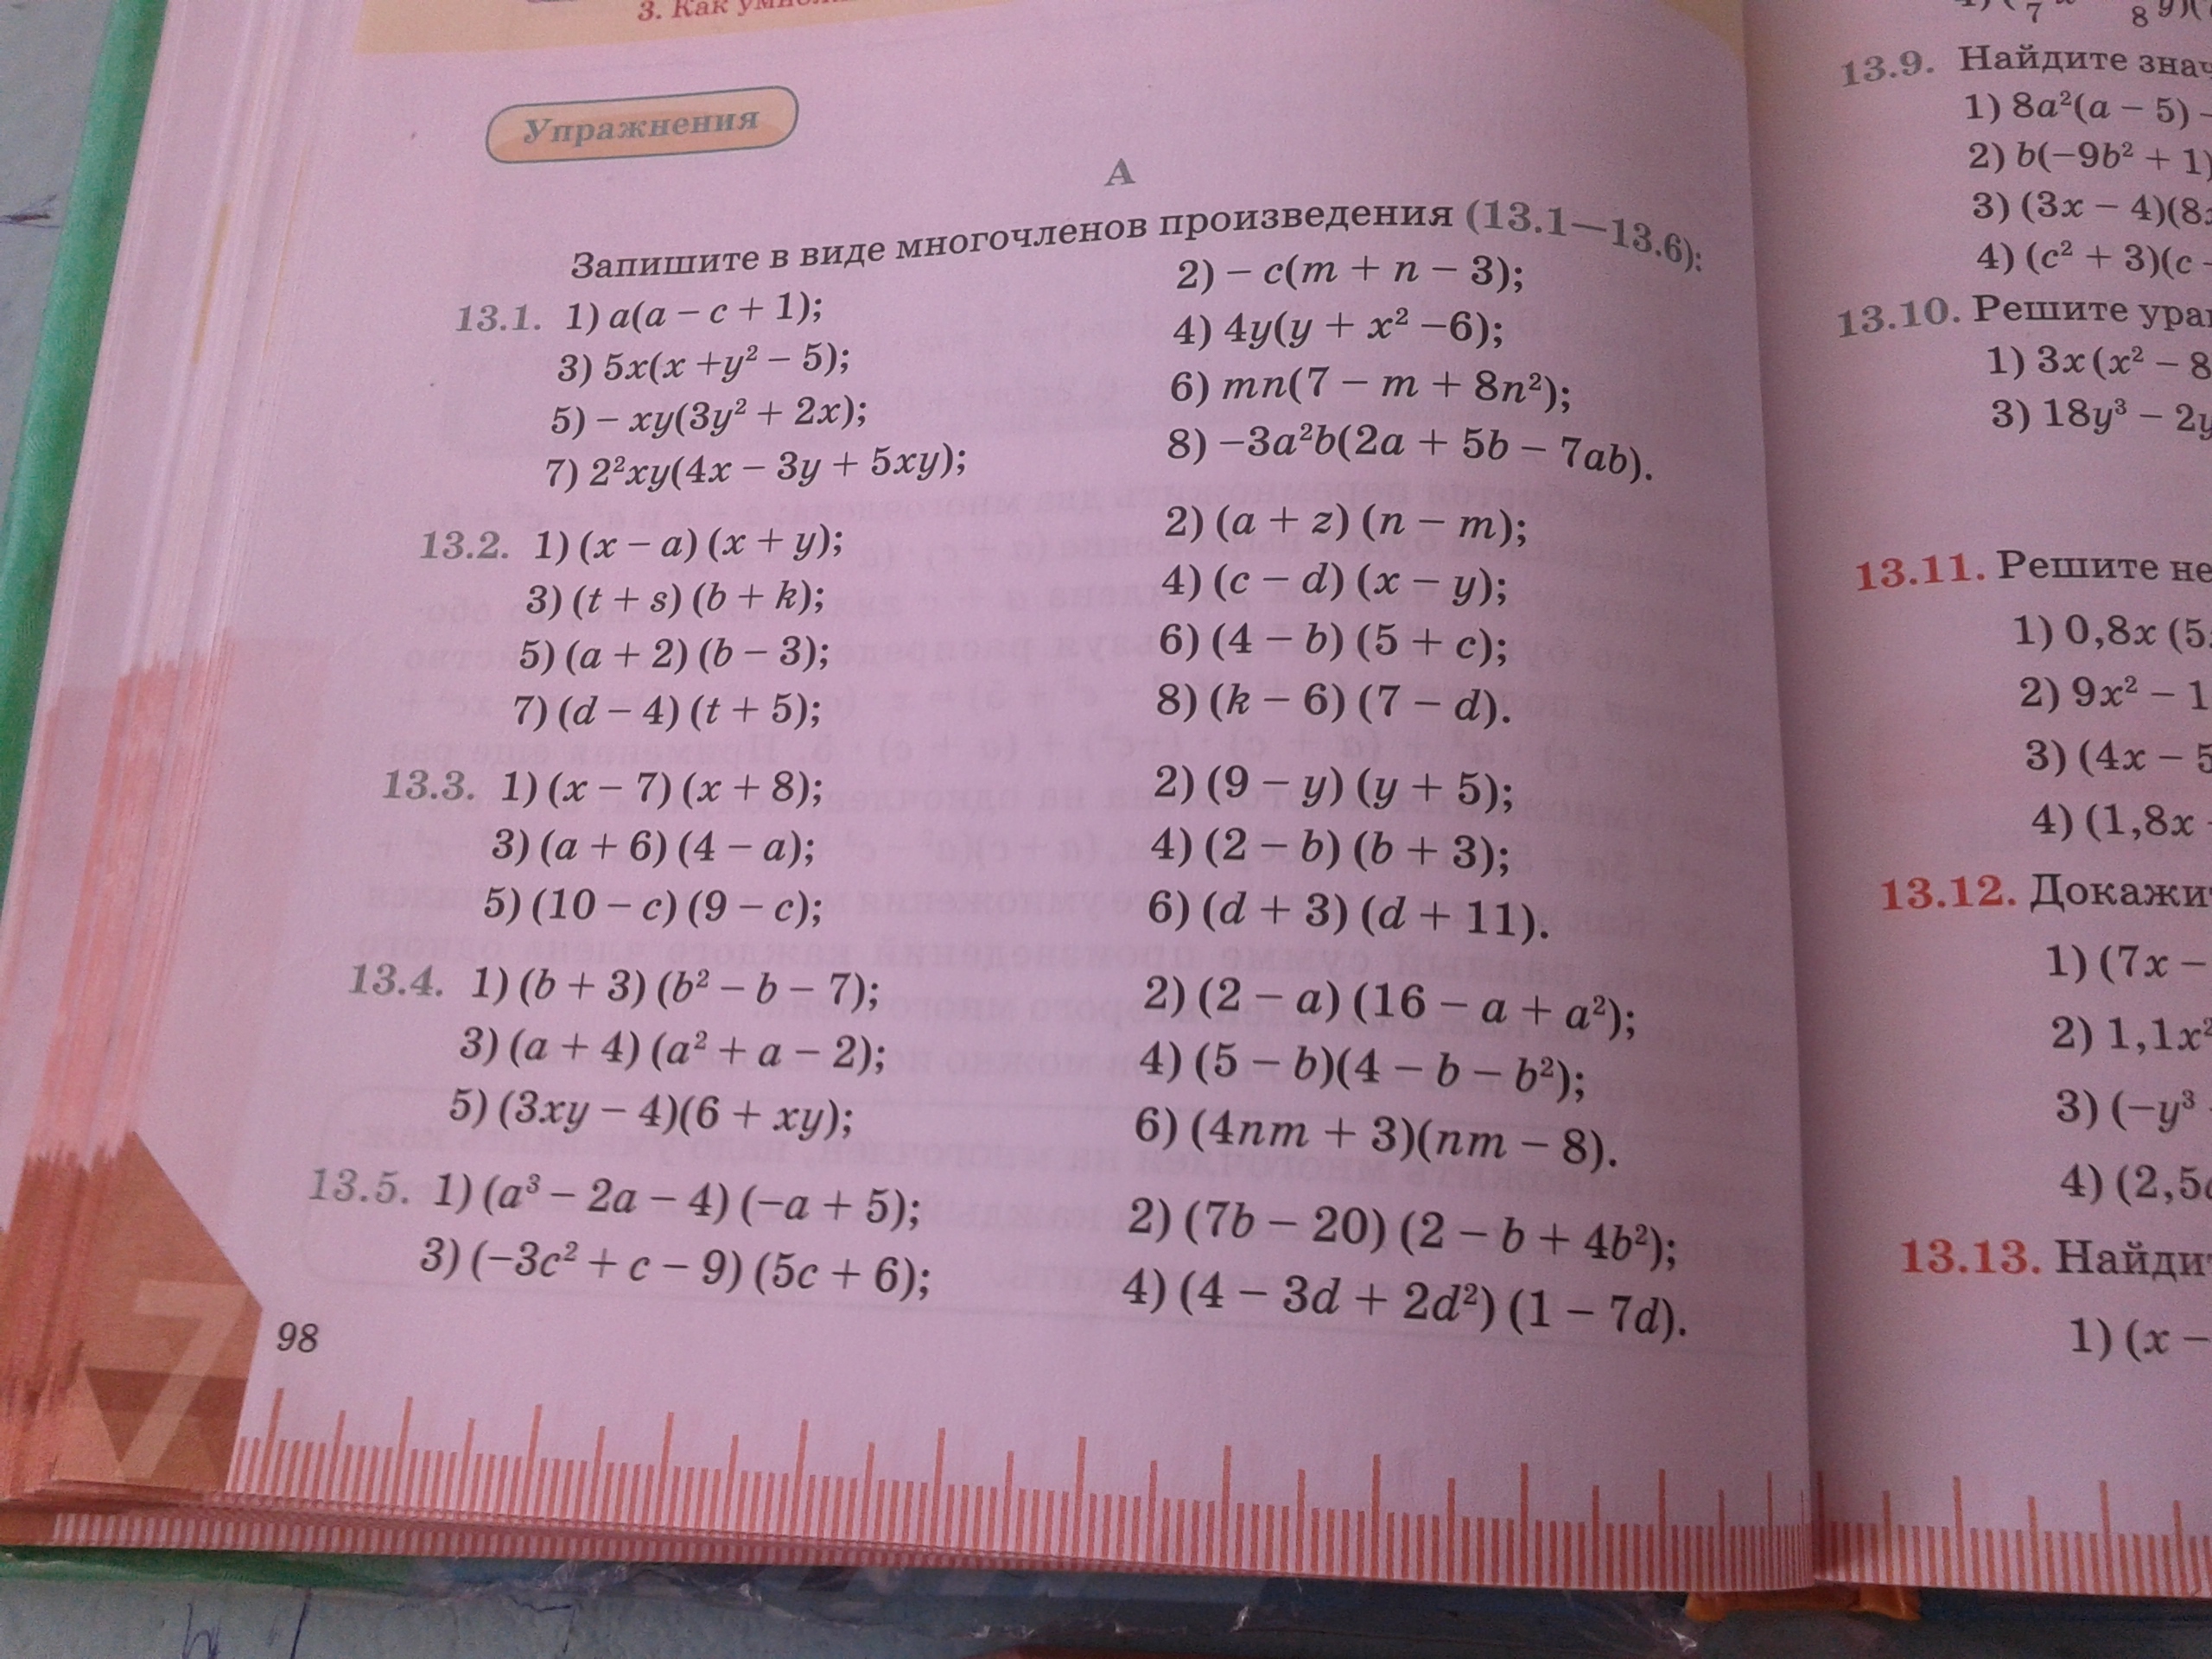 3. Как
Упражнения
А
Запишите в виде многочленов произведения (13.1—13.6):
13.1. 1) a(a – c + 1); 2) – c(m + n – 3);
3) 5x(x +y² – 5); 4) 4y(y + x² –6);
5) – xy(3y² + 2x); 6) mn(7 – m + 8n²);
7) 2²xy(4x – 3y + 5xy); 8) –3a²b(2a + 5b – 7ab).
13.2. 1) (x – a) (x + y); 2) (a + z) (n – m);
3) (t + s) (b + k); 4) (c – d) (x – y);
5) (a + 2) (b – 3); 6) (4 – b) (5 + c);
7) (d – 4) (t + 5); 8) (k – 6) (7 – d).
13.3. 1) (x – 7) (x + 8); 2) (9 – y) (y + 5);
3) (a + 6) (4 – a); 4) (2 – b) (b + 3);
5) (10 – c) (9 – c); 6) (d + 3) (d + 11).
13.4. 1) (b + 3) (b² – b – 7); 2) (2 – a) (16 – a + a²);
3) (a + 4) (a² + a – 2); 4) (5 – b)(4 – b – b²);
5) (3xy – 4)(6 + xy); 6) (4nm + 3)(nm – 8).
13.5. 1) (a³ – 2a – 4) (–a + 5); 2) (7b – 20) (2 – b + 4b²);
3) (–3c² + c – 9) (5c + 6); 4) (4 – 3d + 2d²) (1 – 7d).
98
7
13.9. Найдите знач
1) 8a²(a – 5) –
2) b(–9b² + 1)
3) (3x – 4)(8
4) (c² + 3)(c –
13.10. Решите ура
1) 3x(x² – 8
3) 18y³ – 2y
13.11. Решите не
1) 0,8x (5
2) 9x² – 1
3) (4x – 5
4) (1,8x
13.12. Докажи
1) (7x –
2) 1,1x²
3) (–y³
4) (2,5
13.13. Найди
1) (x –